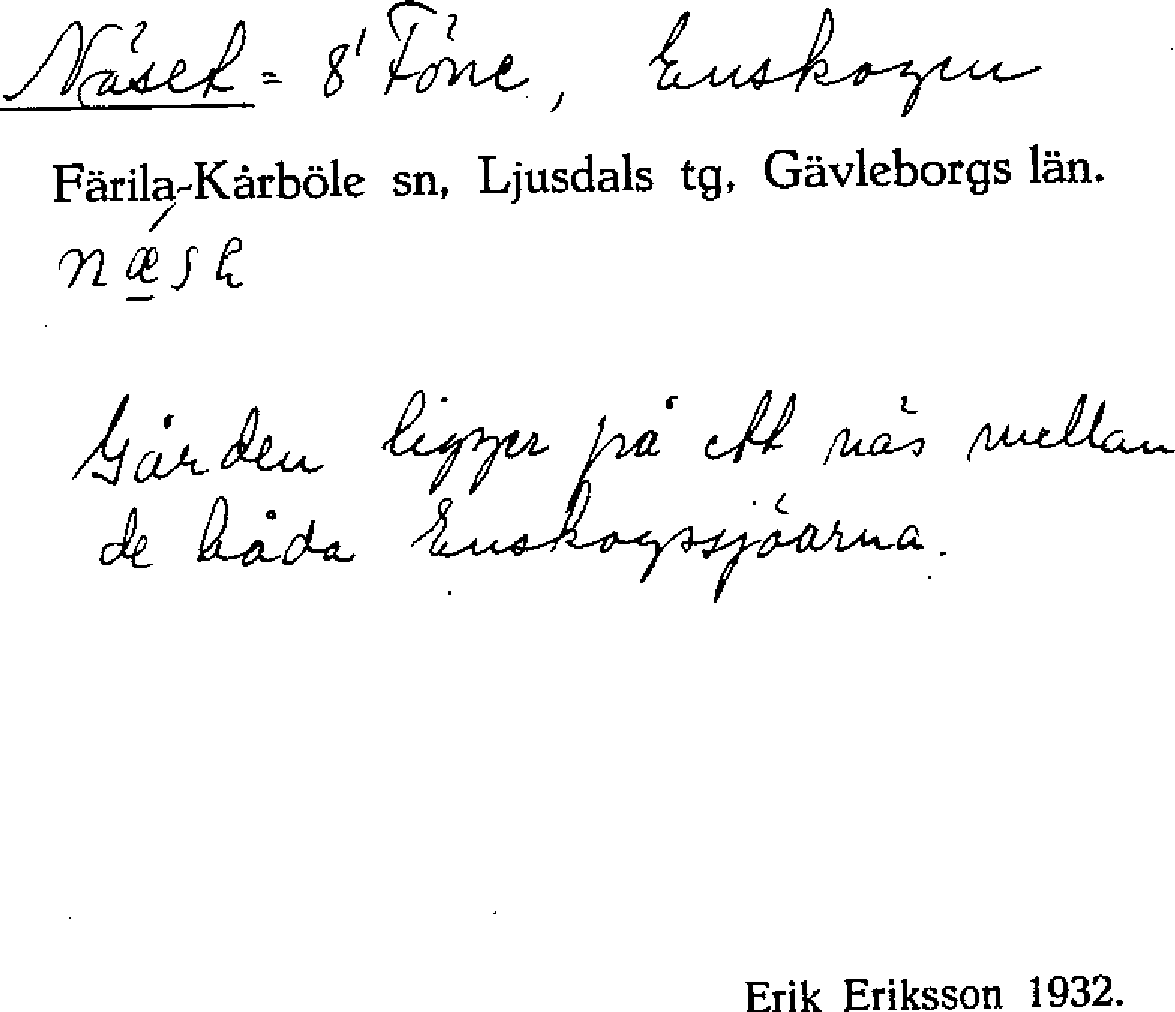 Näset = 8' Föne, Enskogen
Färila-Kårböle sn, Ljusdals tg, Gävleborgs län.
Gården ligger på ett näs mellan
de båda Enskogssjöarna.
Erik Eriksson 1932.